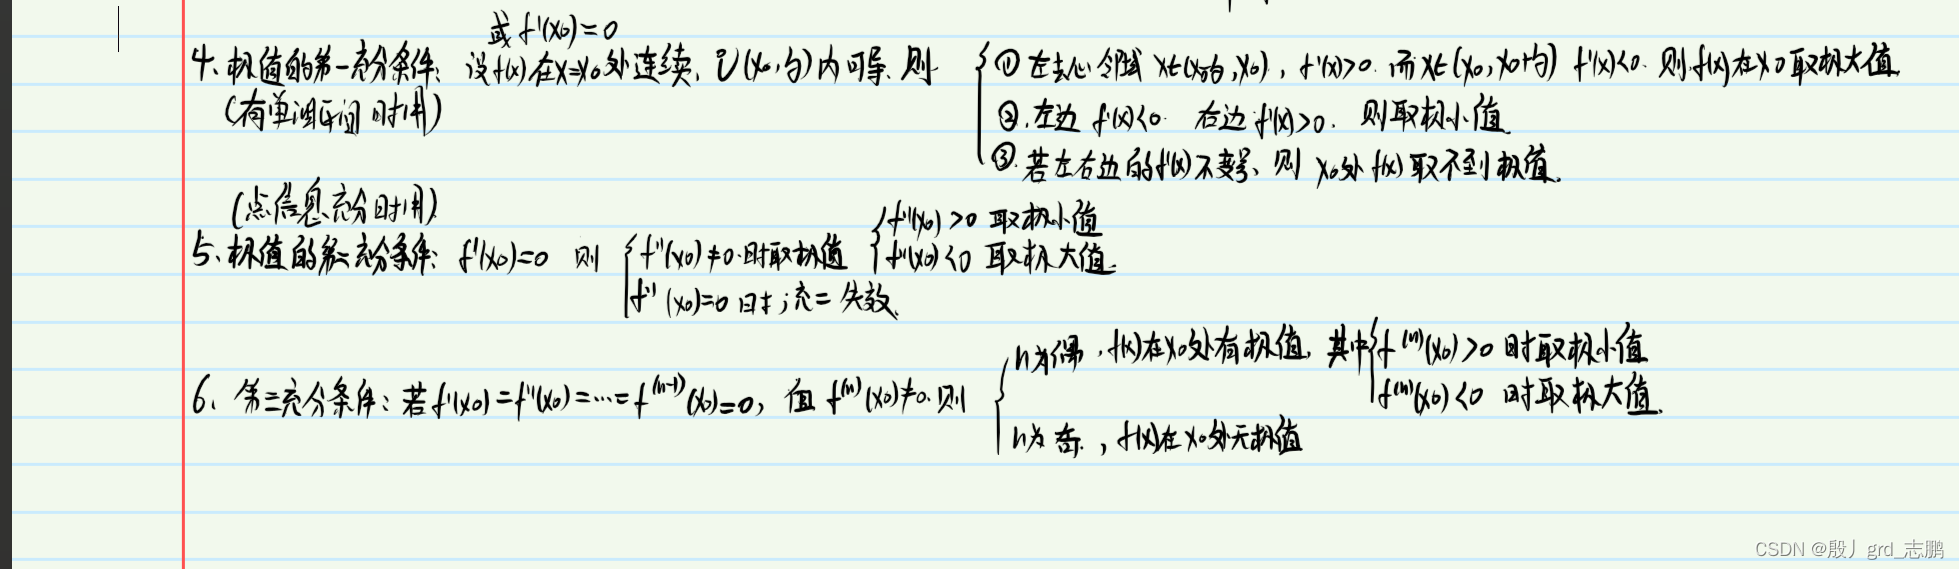 或 f'(x₀)=0
4、极值的第一充分条件: 设f(x)在x=x₀处连续, Ů(x₀,δ)内可导, 则
(有单调区间时用)
① 左去心邻域 x∈(x₀-δ,x₀), f'(x)>0. 而x∈(x₀,x₀+δ) f'(x)<0. 则f(x)在x₀取极大值
②. 左边 f'(x)<0 右边 f'(x)>0. 则取极小值
③. 若左右边的f'(x)不变号、则 x₀处f(x)取不到极值.
(点信息充分时用)
5、极值的第二充分条件: f'(x₀)=0 则
f''(x₀)≠0时取极值
f''(x₀)>0 取极小值
f''(x₀)<0 取极大值
f''(x₀)=0时;充二失效.
6、第三充分条件: 若f'(x₀)=f''(x₀)=…=f⁽ⁿ⁻¹⁾(x₀)=0, 但 f⁽ⁿ⁾(x₀)≠0.则
n为偶, f(x)在x₀处有极值, 其中
f⁽ⁿ⁾(x₀)>0 时取极小值
f⁽ⁿ⁾(x₀)<0 时取极大值.
n为奇, f(x)在x₀处无极值
CSDN @殷丿grd_志鹏